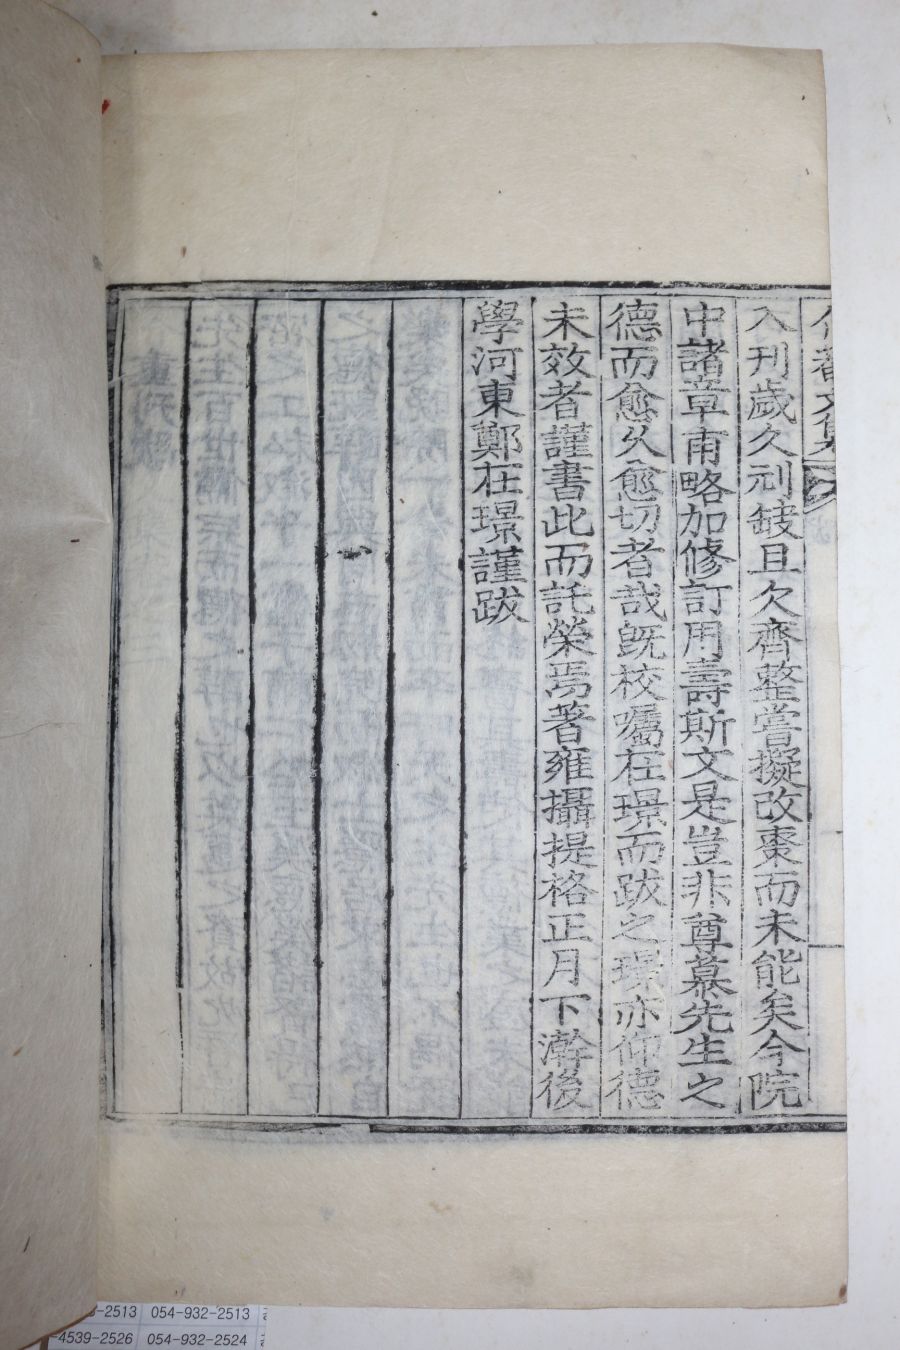 入刊歲久刓鋟且欠齊整嘗擬改棗而未能矣今院
中諸章甫略加修訂用壽斯文是豈非尊慕先生之
德而愈久愈切者哉旣校囑在璟而跋之璟亦仰德
未效者謹書此而託榮焉著雍攝提格正月下澣後
學河東鄭在璟謹跋
-2513 054-932-2513
-4539-2526 054-932-2524